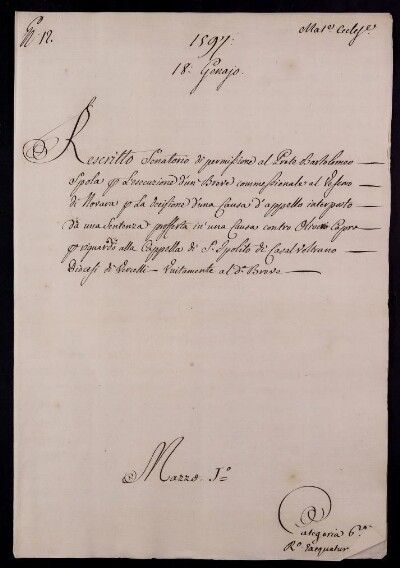 N. 12.
Mat.e Eccles.e
1597:
18: Genajo.
Rescritto Senatorio di permissione al Prete Bartolomeo
Spola p l'esecuzione d'un Breve commessionale al Vescovo
di Novara p la decisione d'una Causa d'appello interposto
da una sentenza profferta in una Causa contro Capra
p riguardo alla Cappella di S. Ipolito di Casal Voltrano
Diocesi di Vercelli - Unitamente al d.o Breve
Mazzo I.o
Categoria 6.a
R.o Exequatur